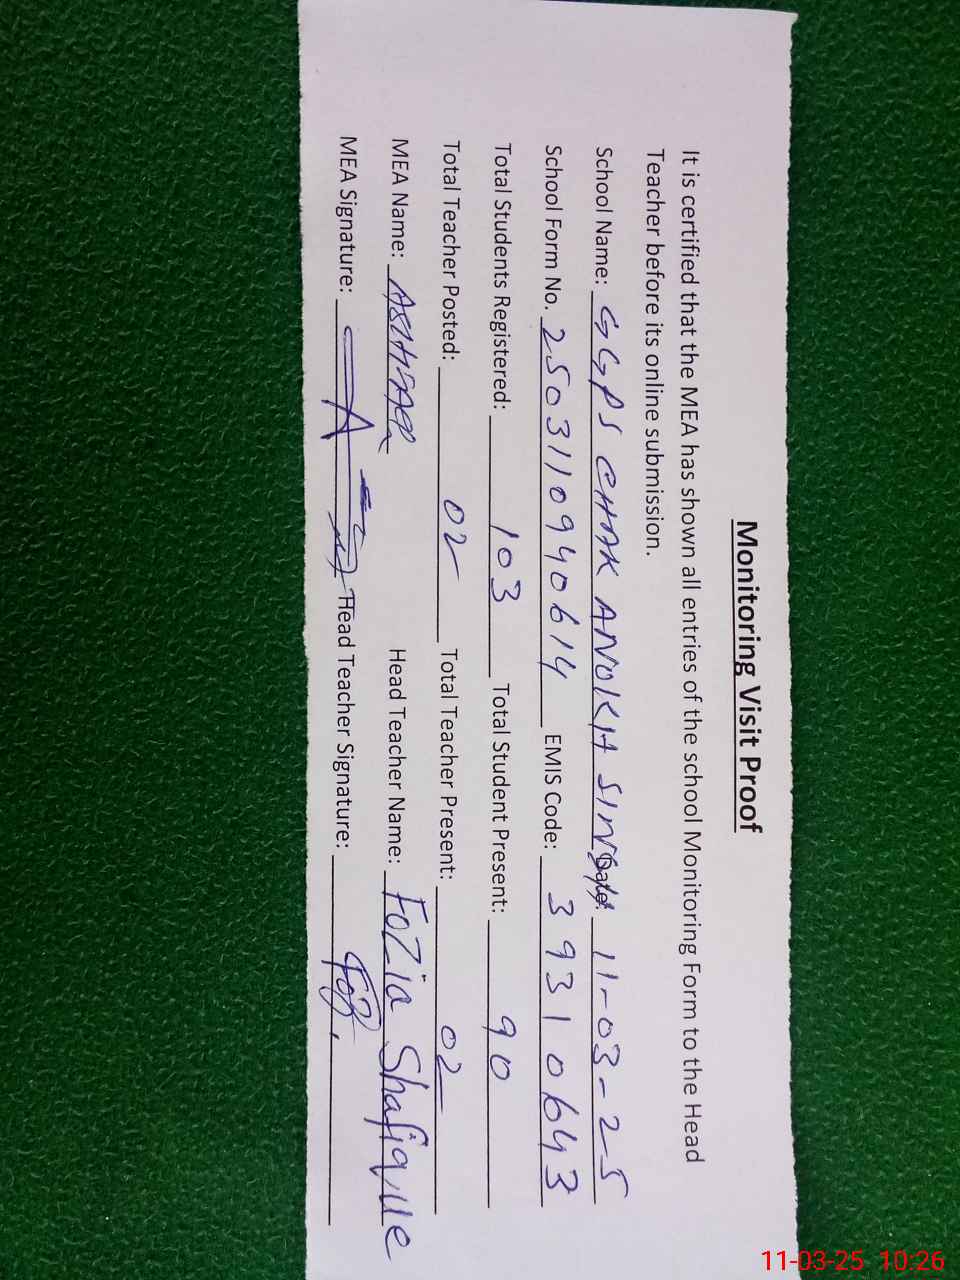 Monitoring Visit Proof
It is certified that the MEA has shown all entries of the school Monitoring Form to the Head
Teacher before its online submission.
School Name: GGPS CHAK ANOKH SINGH Date: 11-03-25
School Form No. 25031109406 14 EMIS Code: 39310643
Total Students Registered: 103 Total Student Present: 90
Total Teacher Posted: 02 Total Teacher Present: 02
MEA Name: Head Teacher Name: Fozia Shafique
MEA Signature: Head Teacher Signature:
11-03-25 10:26